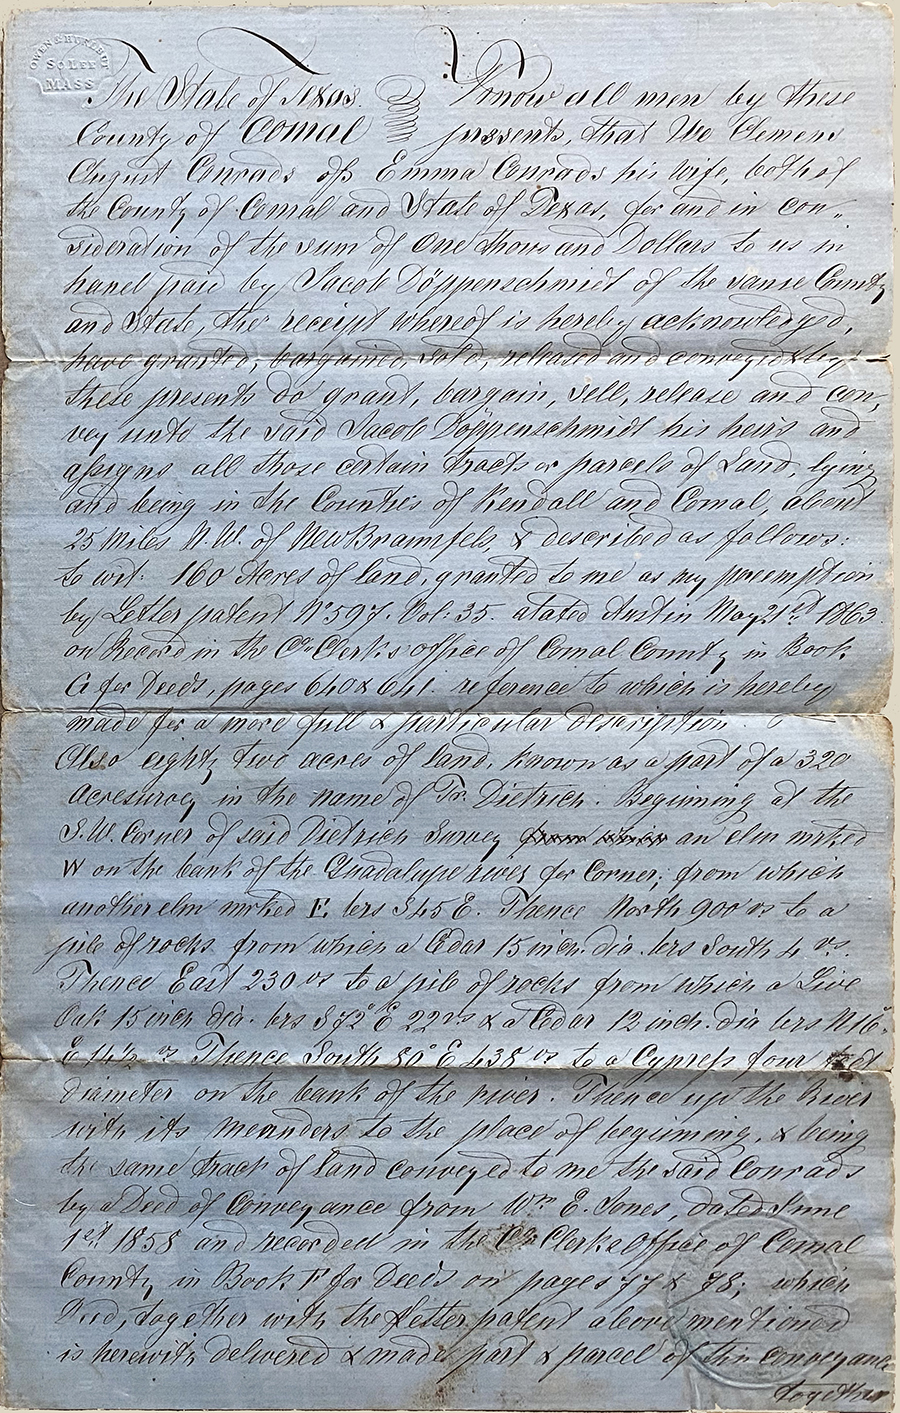 OWEN & HURLBUT
So LEE
MASS
The State of Texas. Know all men by these
County of Comal presents, that We Clemens
August Conrads & Emma Conrads his wife, both of
the County of Comal and State of Texas, for and in con-
sideration of the sum of One thousand Dollars to us in
hand paid by Jacob Döppenschmidt of the same County
and State, the receipt whereof is hereby acknowledged,
have granted, bargained, sold, released and conveyed & by
these presents do grant, bargain, sell, release and con-
vey unto the said Jacob Döppenschmidt his heirs and
assigns all those certain tracts or parcels of Land, lying
and being in the Counties of Kendall and Comal, about
25 Miles N.W. of New Braunfels, & described as follows:
to wit: 160 Acres of land, granted to me as my preemption
by Letter patent No 597. Vol: 35. dated Austin May 21st 1863
on Record in the Co. Clerks office of Comal County in Book
G for Deeds, pages 640 & 641. reference to which is hereby
made for a more full & particular description.
Also eighty two acres of land, known as a part of a 320
acre survey in the name of Fr. Dietrich. Beginning at the
S.W. Corner of said Dietrich Survey from which an elm mrked
W on the bank of the Guadalupe river for Corner; from which
another elm mrked E. brs S 45 E. Thence North 900 vs to a
pile of rocks from which a Cedar 15 inch. dia. brs South 4 vs.
Thence East 230 vs to a pile of rocks from which a Live
Oak 15 inch dia. brs S 72° E 22 vs & a Cedar 12 inch. dia brs N 16°
E 14½ vs Thence South 50° E 435 vs to a Cypress four feet
diameter on the bank of the river. Thence up the River
with its meanders to the place of beginning, & being
the same tract of land conveyed to me the said Conrads
by a Deed of Conveyance from Wm E. Jones, dated June
1st 1858 and recorded in the Co. Clerks Office of Comal
County in Book F for Deeds on pages 77 & 78; which
Deed, together with the letter patent above mentioned
is herewith delivered & made part & parcel of this conveyance
together